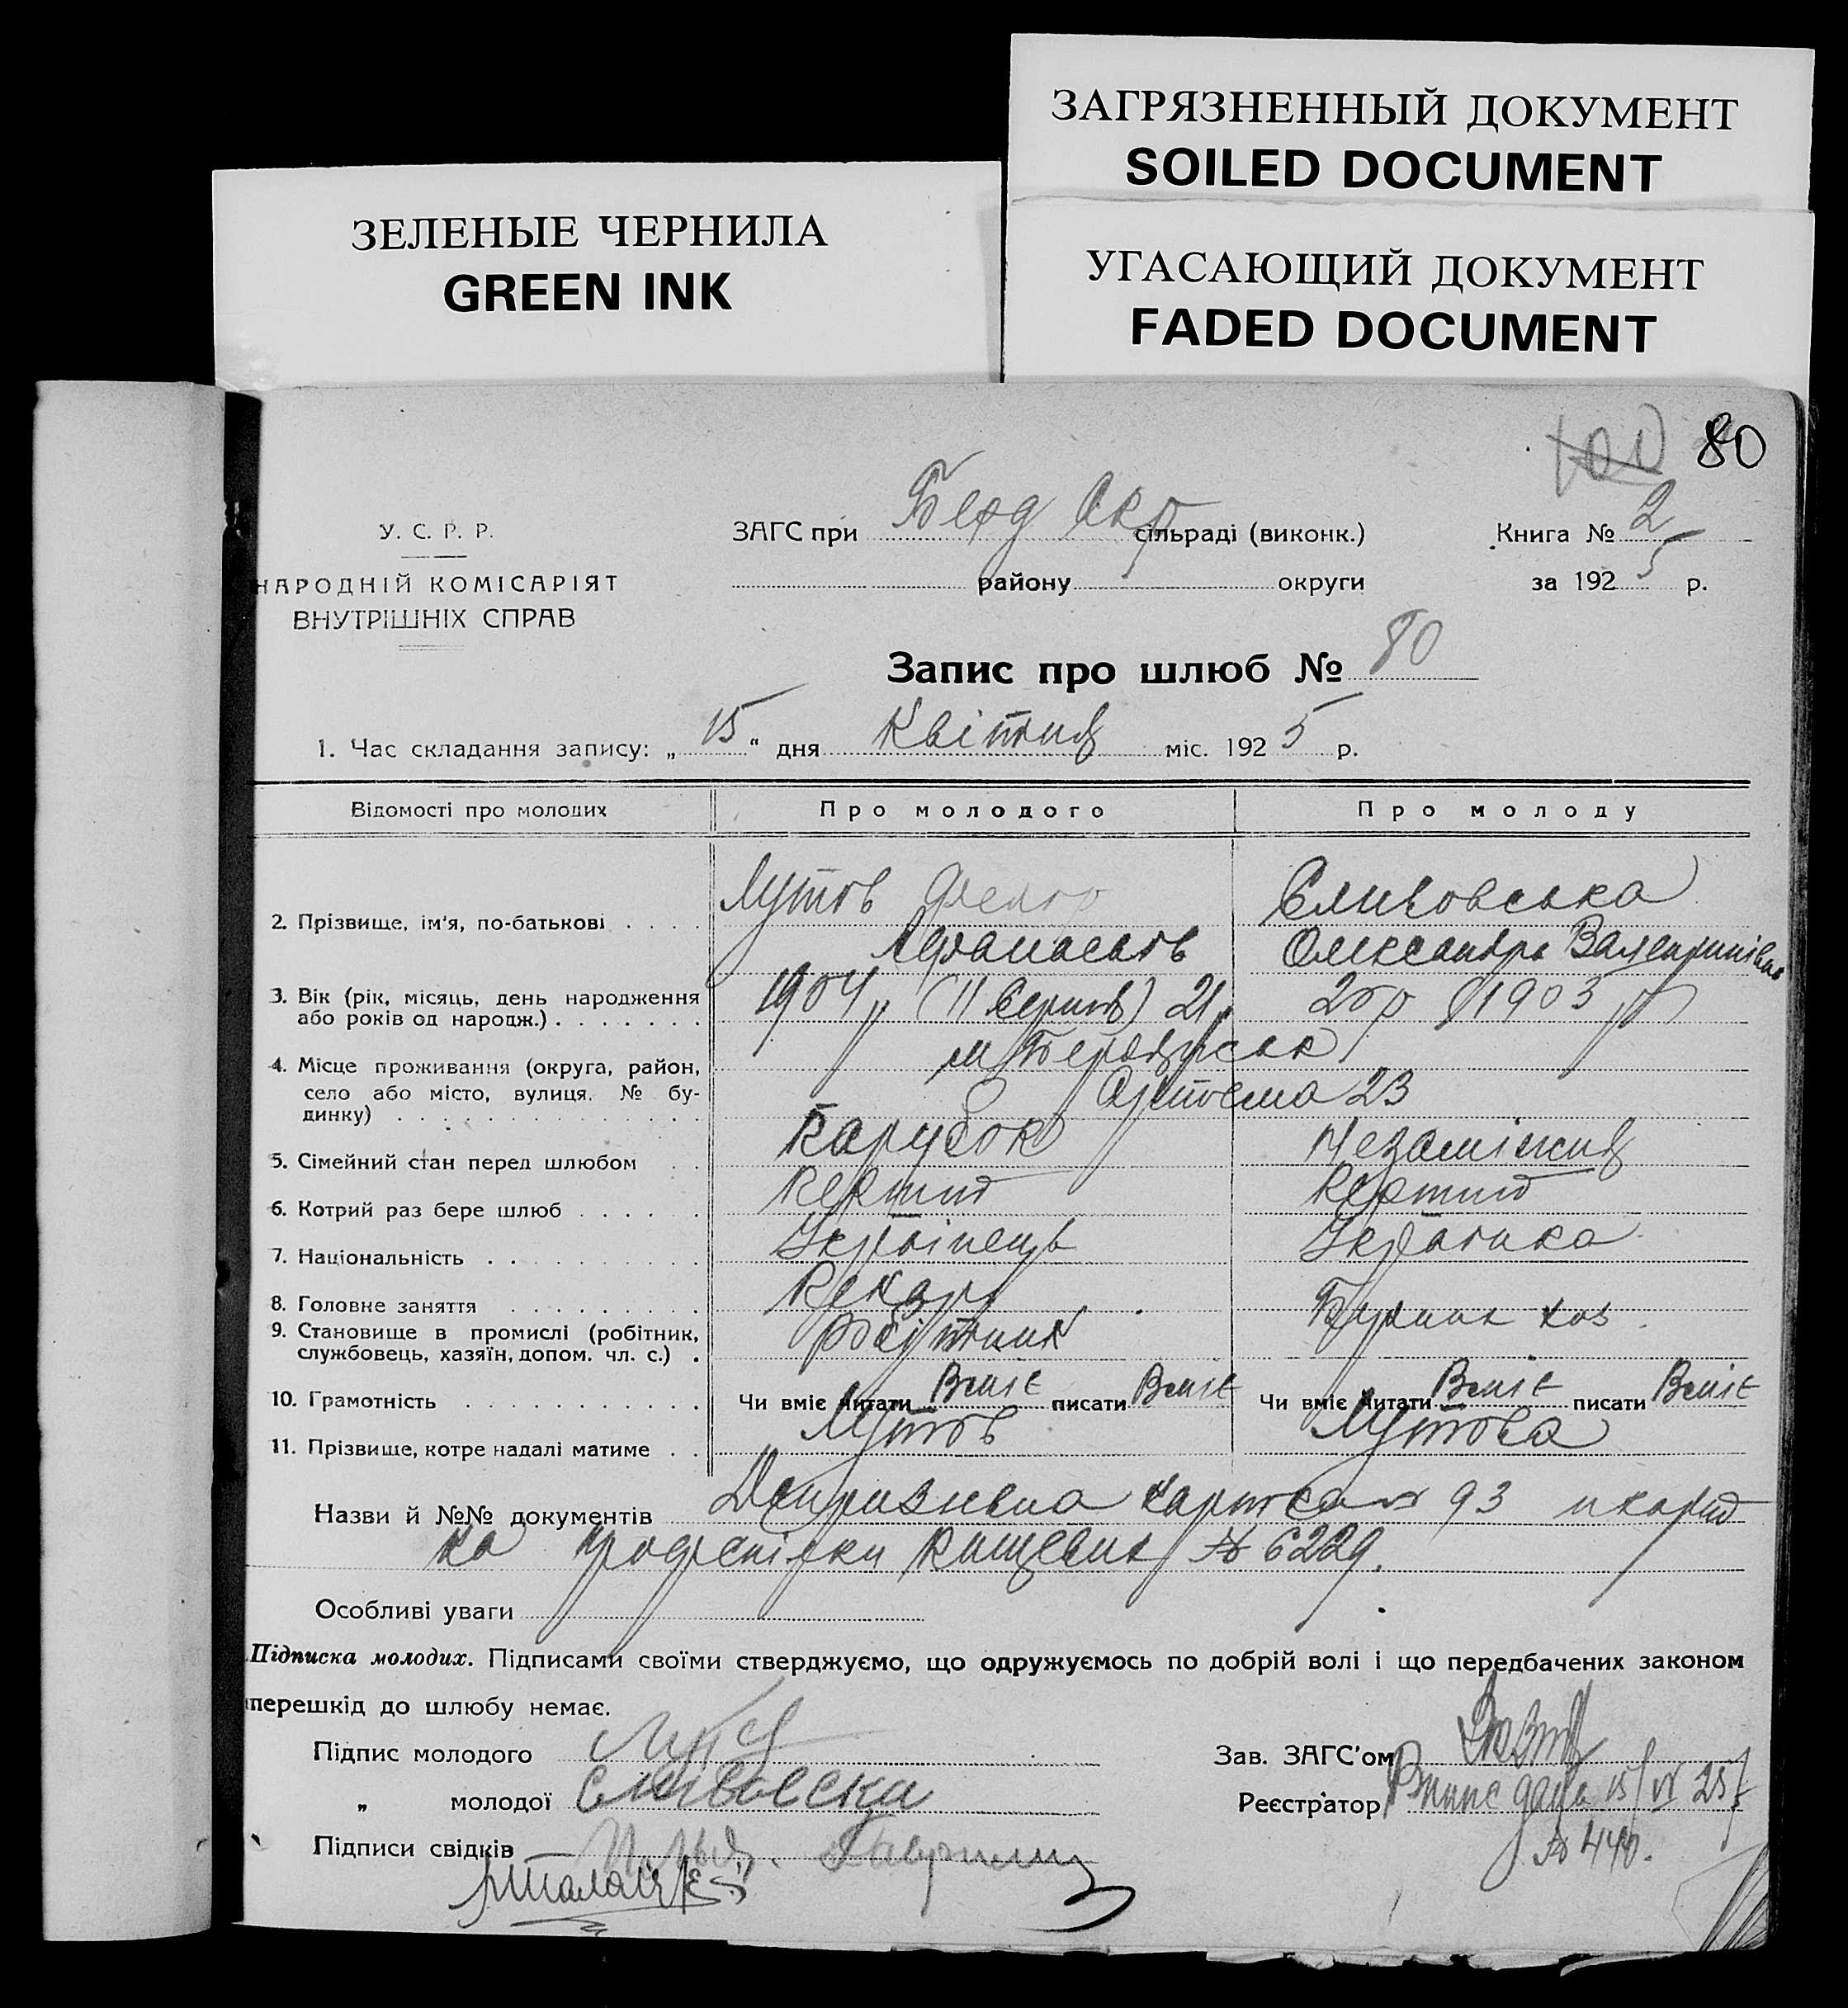 ЗАГРЯЗНЕННЫЙ ДОКУМЕНТ
SOILED DOCUMENT
ЗЕЛЕНЫЕ ЧЕРНИЛА
GREEN INK
УГАСАЮЩИЙ ДОКУМЕНТ
FADED DOCUMENT
100 80
У. С. Р. Р.
НАРОДНІЙ КОМІСАРІЯТ
ВНУТРІШНІХ СПРАВ
ЗАГС при Берд Окр сільраді (виконк.)
району округи
Книга № 2
за 1925 р.
Запис про шлюб № 80
1. Час складання запису: „15“ дня Квітня міс. 1925 р.
Відомості про молодих Про молодого Про молоду
2. Прізвище, ім'я, по-батькові Лутов Федор
Афанасьев Олександра Валентинівна
3. Вік (рік, місяць, день народження 1904 (11 Серпня) 21 1903
або років од народж.)
4. Місце проживання (округа, район, м Бердянськ
село або місто, вулиця, № бу- Артема 23
динку)
5. Сімейний стан перед шлюбом Парубок Незаміжня
6. Котрий раз бере шлюб Перший Перший
7. Національність Українець Українка
8. Головне заняття Пекарь
9. Становище в промислі (робітник, Робітник
службовець, хазяїн, допом. чл. с.)
10. Грамотність Чи вміє читати Вміє писати Вміє Чи вміє читати Вміє писати Вміє
11. Прізвище, котре надалі матиме Лутов Лутова
Назви й №№ документів Допризивна картка № 93
ка профспілки № 6229.
Особливі уваги
Підписка молодих. Підписами своїми стверджуємо, що одружуємось по добрій волі і що передбачених законом
перешкід до шлюбу немає.
Підпис молодого
„ молодої
Підписи свідків
Зав. ЗАГС'ом
Реєстратор
№ 440.